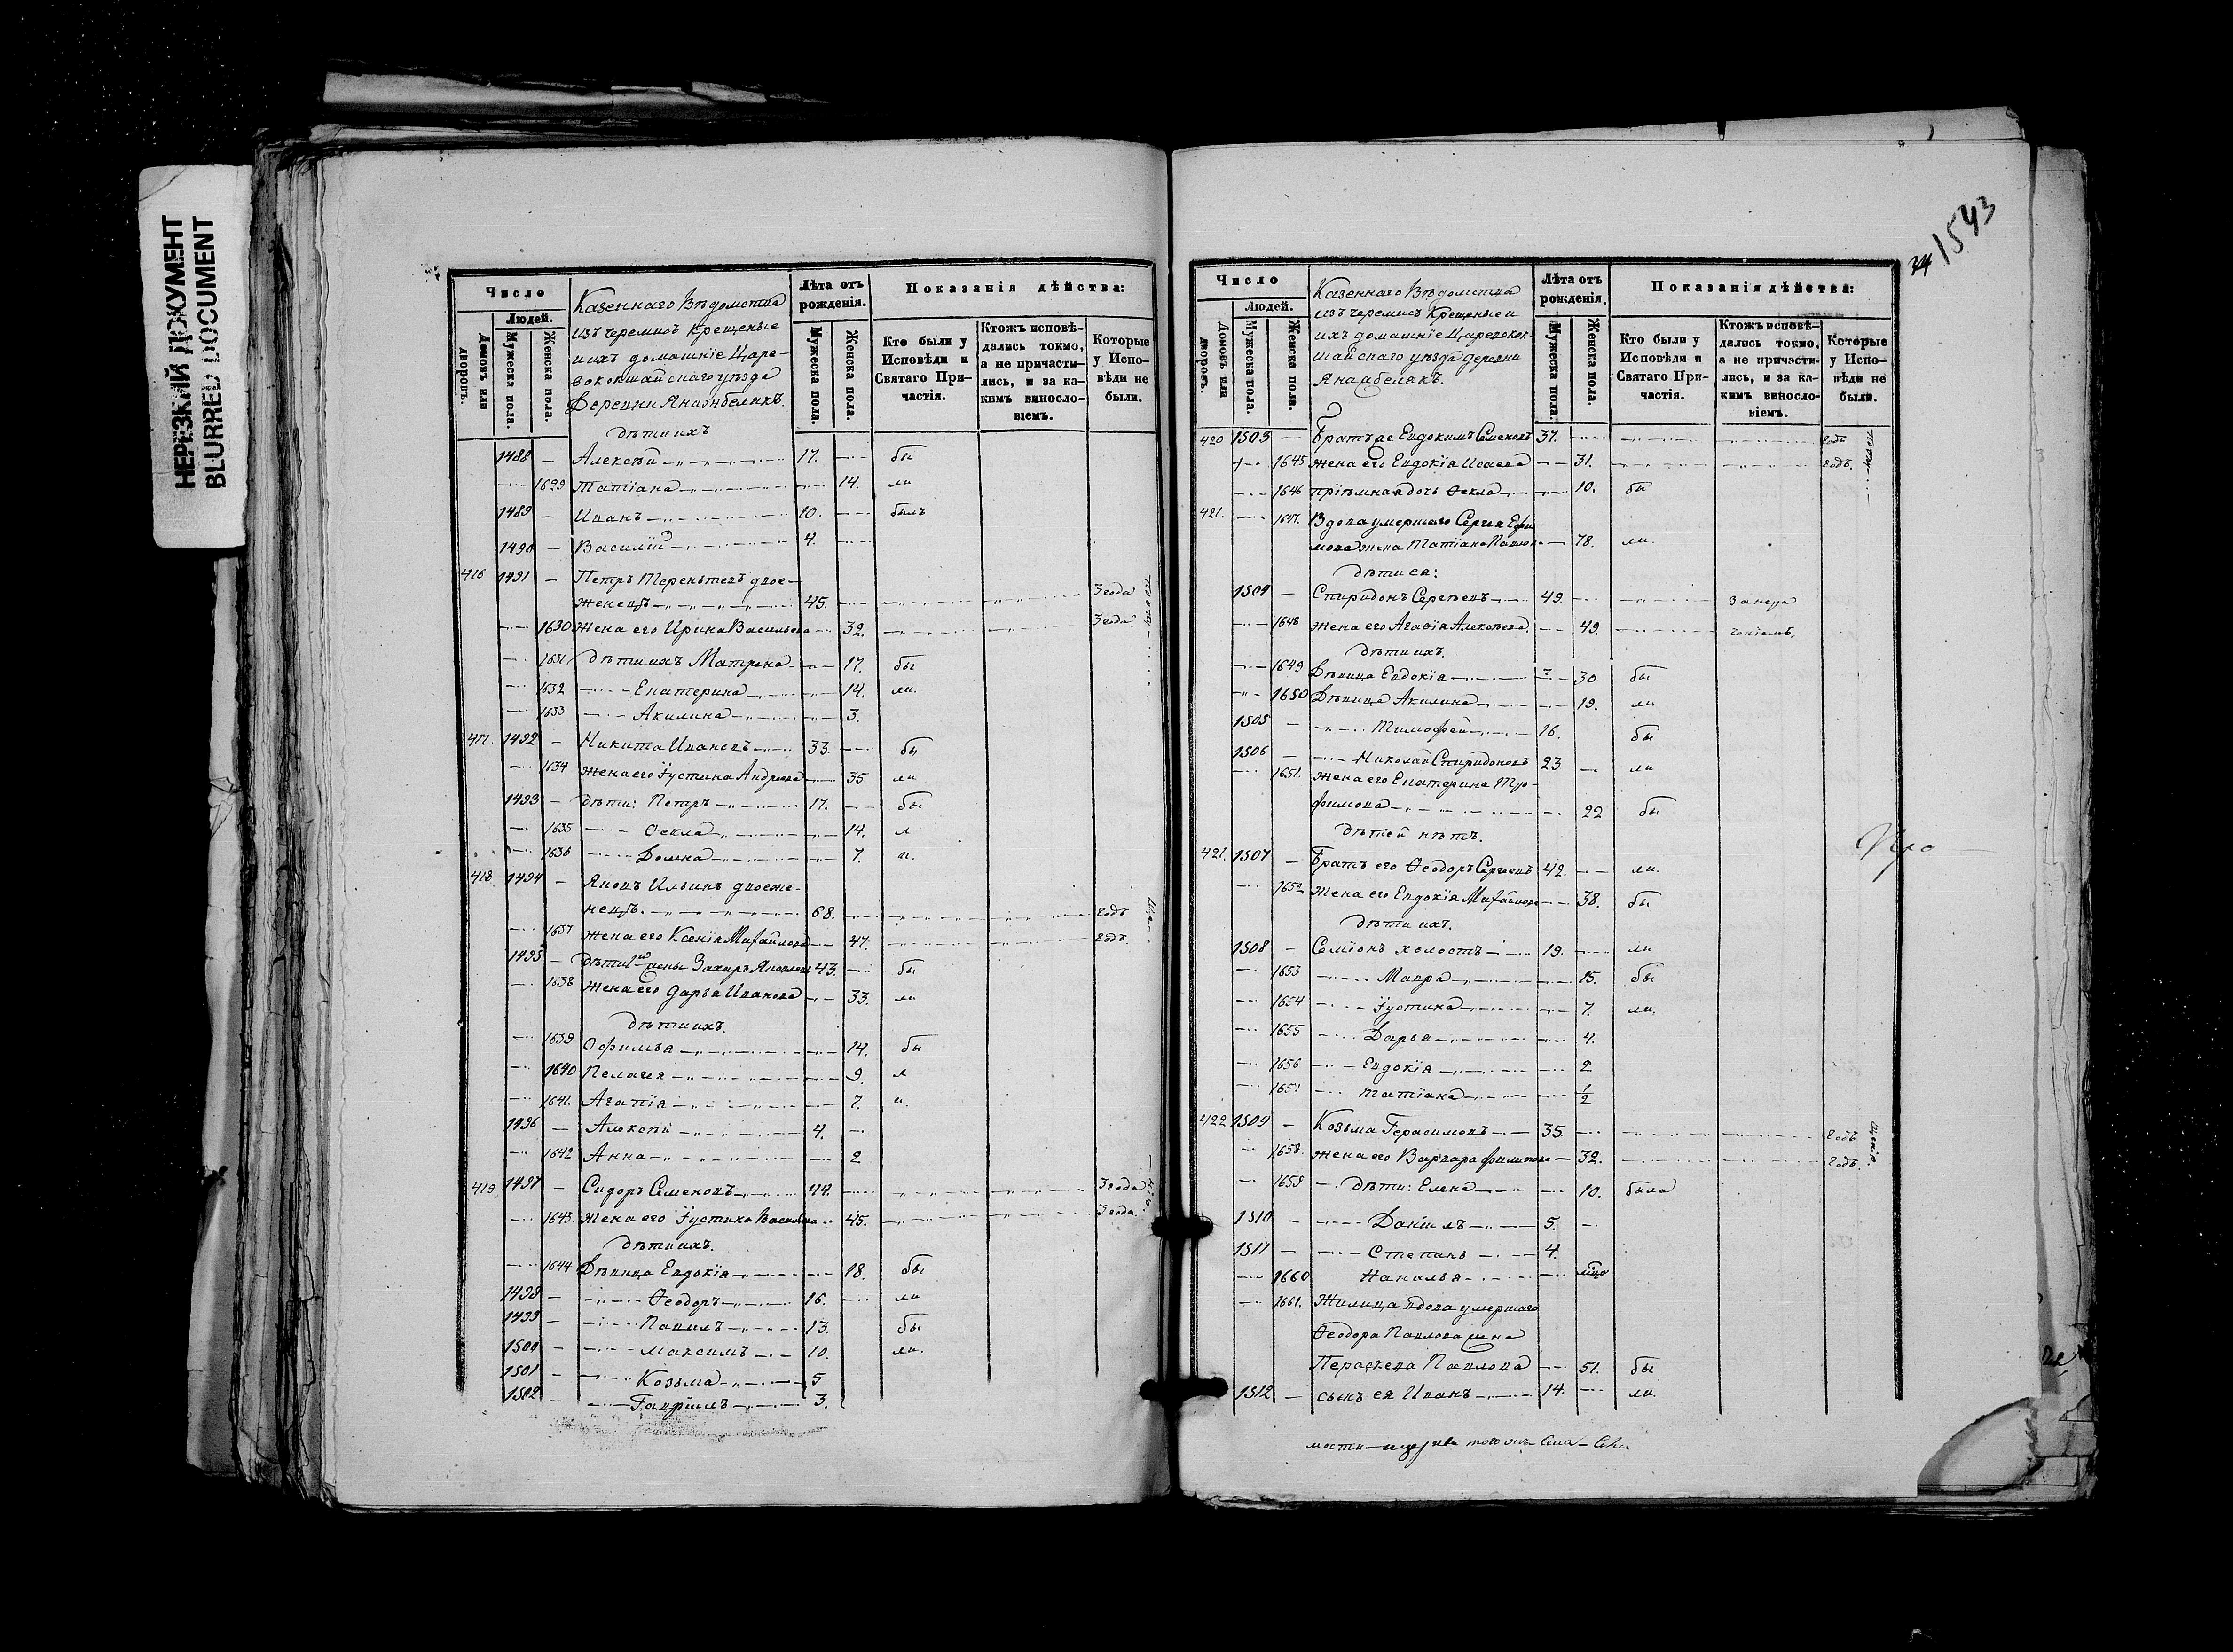 НЕРЕЗКИЙ ДОКУМЕНТ
BLURRED DOCUMENT
Число
Людей.
Домовъ или дворовъ.
Мужеска пола.
Женска пола.
Казеннаго Вѣдомства
изъ черемисъ крещеные
и ихъ домашніе Царе-
вококшайскаго уѣзда
Деревни
Лѣта отъ рожденія.
Мужеска пола.
Женска пола.
Показанія дѣйства:
Кто были у Исповѣди и Святаго Причастія.
Ктожъ исповѣдались токмо, а не причастились, и за какимъ винословіемъ.
Которые у Исповѣди не были.
дѣти ихъ
1488 — Алексѣй 17. бы
1629 Татіана 14. ли
1489 — Иванъ 10. былъ
1490 — Василій 4.
416 1491 — Петръ Терентьевъ двое-
женецъ 45. 3 года
1630 Жена его Ирина Васильева 32. 3 года
1631 дѣти ихъ Матрена 17. бы
1632 Екатерина 14. ли.
1633 Акилина 3.
417. 1492 — Никита Ивановъ 33. бы
1634 Жена его Іустина Андреева 35 ли
1493 — дѣти: Петръ 17. бы
1635 Ѳекла 14. л
1636 Домна 7. и.
418 1494 — Яковъ Ильинъ двоеже-
нецъ. 68. годъ
1637 Жена его Ксенія Михайлова 47. годъ
1495 — дѣти 1й жены Захаръ Яковлевъ 43. бы
1638 Жена его Дарья Иванова 33. ли
дѣти ихъ.
1639 Ефимья 14. бы
1640 Пелагея 9. л
1641. Агапія 7. и.
1496 — Алексѣй 4.
1642 Анна 2
419 1497 — Сидоръ Семеновъ 44. 3 года
1643. Жена его Іустина Васильева 45. 3 года.
дѣти ихъ.
1644 Дѣвица Евдокія 18. бы
1498 — Ѳеодоръ 16. ли
1499 — Павилъ 13. бы
1500 — Максимъ 10. ли.
1501 — Козьма 5
1502 — Гавріилъ 3.
1543
Число
Людей.
Домовъ или дворовъ.
Мужеска пола.
Женска пола.
Казеннаго Вѣдомства
изъ черемисъ Крещеные и
ихъ домашніе Царевокок-
шайскаго уѣзда деревни
Лѣта отъ рожденія.
Мужеска пола.
Женска пола.
Показанія дѣйства:
Кто были у Исповѣди и Святаго Причастія.
Ктожъ исповѣдались токмо, а не причастились, и за какимъ винословіемъ.
Которые у Исповѣди не были.
420 1503 — Братъ его Евдокимъ Семеновъ 37. годъ
1645 жена его Евдокія Исаева 31. годъ.
1646 пріемная дочь Ѳекла 10. бы
421. 1647. Вдова умершаго Сергея Ефи
мова жена Татіана Павлова 78. ли.
дѣти ея:
1504 — Спиридонъ Сергѣевъ 49.
1648 жена его Агафія Алексѣева. 49.
дѣти ихъ.
1649 Дѣвица Евдокія 30 бы
1650 Дѣвица Акилина 19. ли
1505 — Тимофей 16. бы
1506 — Николай Спиридоновъ 23 — ли
1651. Жена его Екатерина Тро-
фимова 22 бы
дѣтей нѣтъ.
421. 1507 — Братъ его Ѳеодоръ Сергеевъ 42. ли.
1652 Жена его Евдокія Михайлова 38. бы
дѣти ихъ.
1508 — Семіонъ холостъ 19. ли
1653 Мавра 15. бы
1654 Іустина 7. ли,
1655 Дарья 4.
1656 Евдокія 2
1657 Татіана 1/2
422 1509 — Козьма Герасимовъ 35. годъ
1658. Жена его Варвара Филипова 32. годъ.
1659 дѣти: Елена 10. была
1510 — Даніилъ 5.
1511 — Степанъ 4.
1660
1661. Жилица вдова умершаго
Ѳеодора Павлова жена
Параскева Павлова 51. бы
1512 — сынъ ея Иванъ 14. ли.
Про